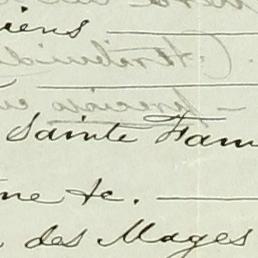 iens
Sainte Fam
ne &c.
des Mages